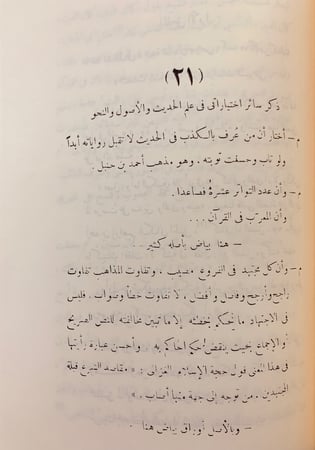 (٢١)
ذكر سائر اختياراتى فى علم الحديث والأصول والنحو
م – أختار أن من عُرف بالكذب فى الحديث لا تقبل رواياته أبداً
ولو تاب وحسنت توبته. وهو مذهب أحمد بن حنبل.
م – وأن عدد التواتر عشرةُ فصاعدا.
وأن المعرّب فى القرآن ...
– هنا بياض بأصله كثير –
م – وأن كل مجتهد فى الفروع مصيب، وتفاوت المذاهب تفاوت
راجح وأرجح وفاضل وأفضل، لا تفاوت خطأ وصواب. فليس
فى الاجتهاد ما يُحكم بخطئه إلا ما تبين مخالفته للنص الصريح
أو الإجماع بحيث ينقض حُكم الحاكم به. وأحسن عبارة رأيتها
فى هذا المعنى قول حجة الإسلام الغزالى: « مقاصد الشرع قبلة
المجتهدين، من توجه إلى جهة منها أصاب. »
– وبالأصل أوراق بياض هنا –